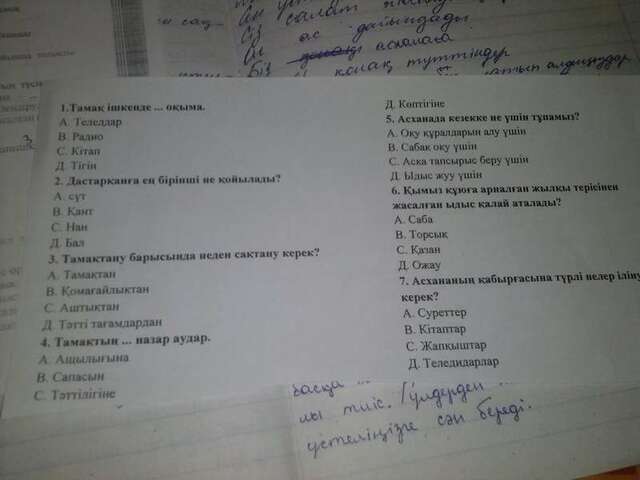 сіз салат
ас дайындады
асханаға
Біз қолақ туттіңдер
1.Тамақ ішкенде ... оқыма.
А. Теледдар
В. Радио
С. Кітап
Д. Тігін
2. Дастарқанға ең бірінші не қойылады?
А. сүт
В. Қант
С. Нан
Д. Бал
3. Тамақтану барысында неден сақтану керек?
А. Тамақтан
В. Қомағайлықтан
С. Аштықтан
Д. Тәтті тағамдардан
4. Тамақтың ... назар аудар.
А. Ащылығына
В. Сапасын
С. Тәттілігіне
Д. Көптігіне
5. Асханада кезекке не үшін тұпамыз?
А. Оқу құралдарын алу үшін
В. Сабақ оқу үшін
С. Асқа тапсырыс беру үшін
Д. Ыдыс жуу үшін
6. Қымыз құюға арналған жылқы терісінен
жасалған ыдыс қалай аталады?
А. Саба
В. Торсық
С. Қазан
Д. Ожау
7. Асхананың қабырғасына түрлі нелер іліну
керек?
А. Суреттер
В. Кітаптар
С. Жапқыштар
Д. Теледидарлар
басқа ...
лы тиіс. Гүлдерден ...
үстеліңізге сән береді.